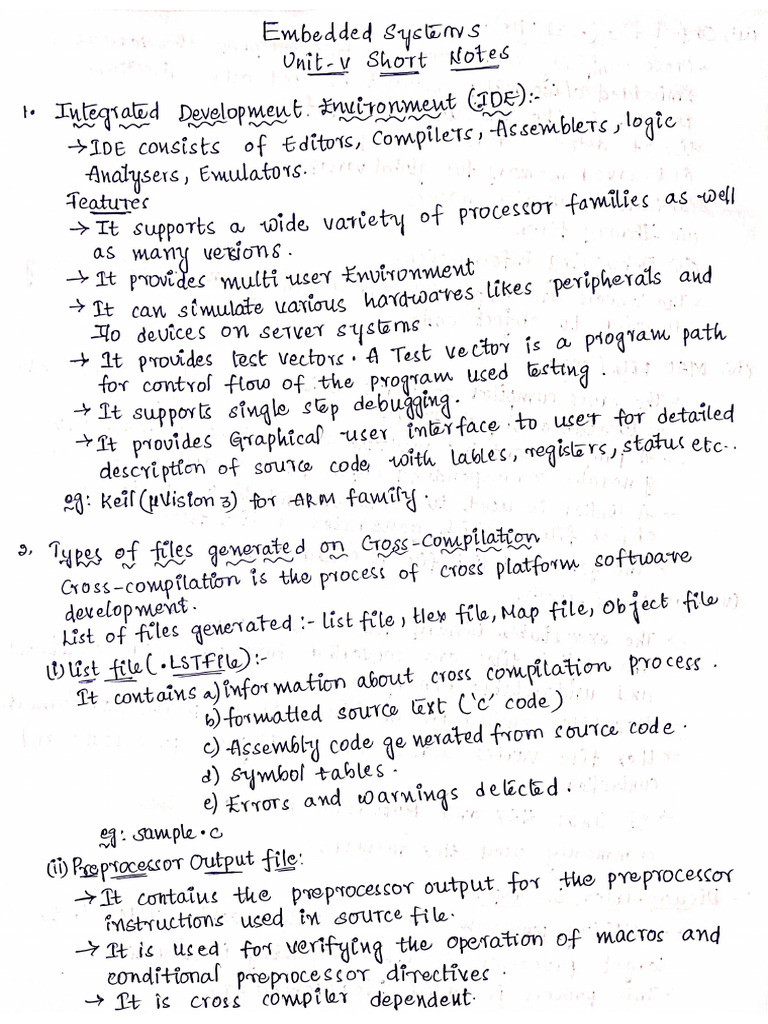 Embedded Systems
Unit-V Short Notes
1. Integrated Development Environment (IDE):-
→ IDE consists of Editors, Compilers, Assemblers, logic
Analysers, Emulators.
Features
→ It supports a wide variety of processor families as well
as many versions.
→ It provides multi user Environment
→ It can simulate various hardwares likes peripherals and
I/o devices on server systems.
→ It provides test vectors. A Test vector is a program path
for control flow of the program used testing.
→ It supports single step debugging.
→ It provides Graphical user interface to user for detailed
description of source code with lables, registers, status etc..
eg: Keil (μVision 3) for ARM family.
2. Types of files generated on Cross-Compilation
Cross-compilation is the process of cross platform software
development.
List of files generated :- list file, Hex file, Map file, Object file
(i) list file (.LSTFile):-
It contains a) information about cross compilation process.
b) formatted source text ('c' code)
c) Assembly code generated from source code.
d) Symbol tables.
e) Errors and warnings detected.
eg: sample.c
(ii) Preprocessor Output file:
→ It contains the preprocessor output for the preprocessor
instructions used in source file.
→ It is used for verifying the operation of macros and
conditional preprocessor directives.
→ It is cross compiler dependent.